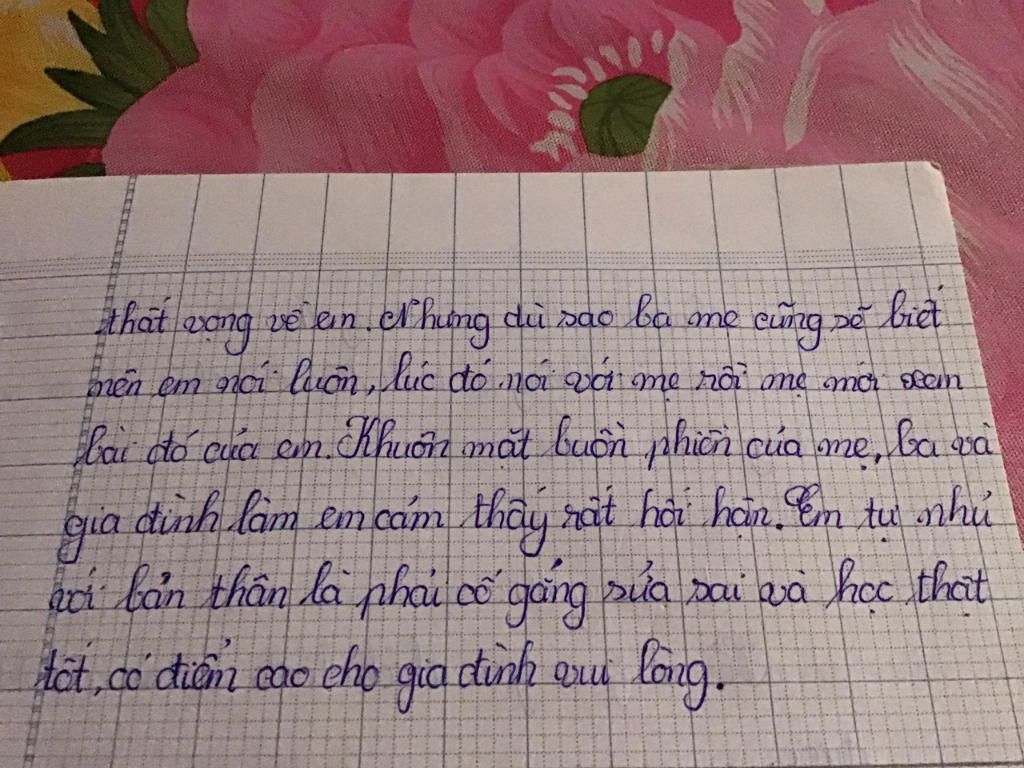 thất vọng về em. Nhưng dù sao ba mẹ cũng sẽ biết
nên em nói luôn, lúc đó nói với mẹ rồi mẹ mới xem
bài đó của em. Khuôn mặt buồn phiền của mẹ, ba và
gia đình làm em cảm thấy rất hối hận. Em tự nhủ
với bản thân là phải cố gắng sửa sai và học thật
tốt, có điểm cao cho gia đình vui lòng.